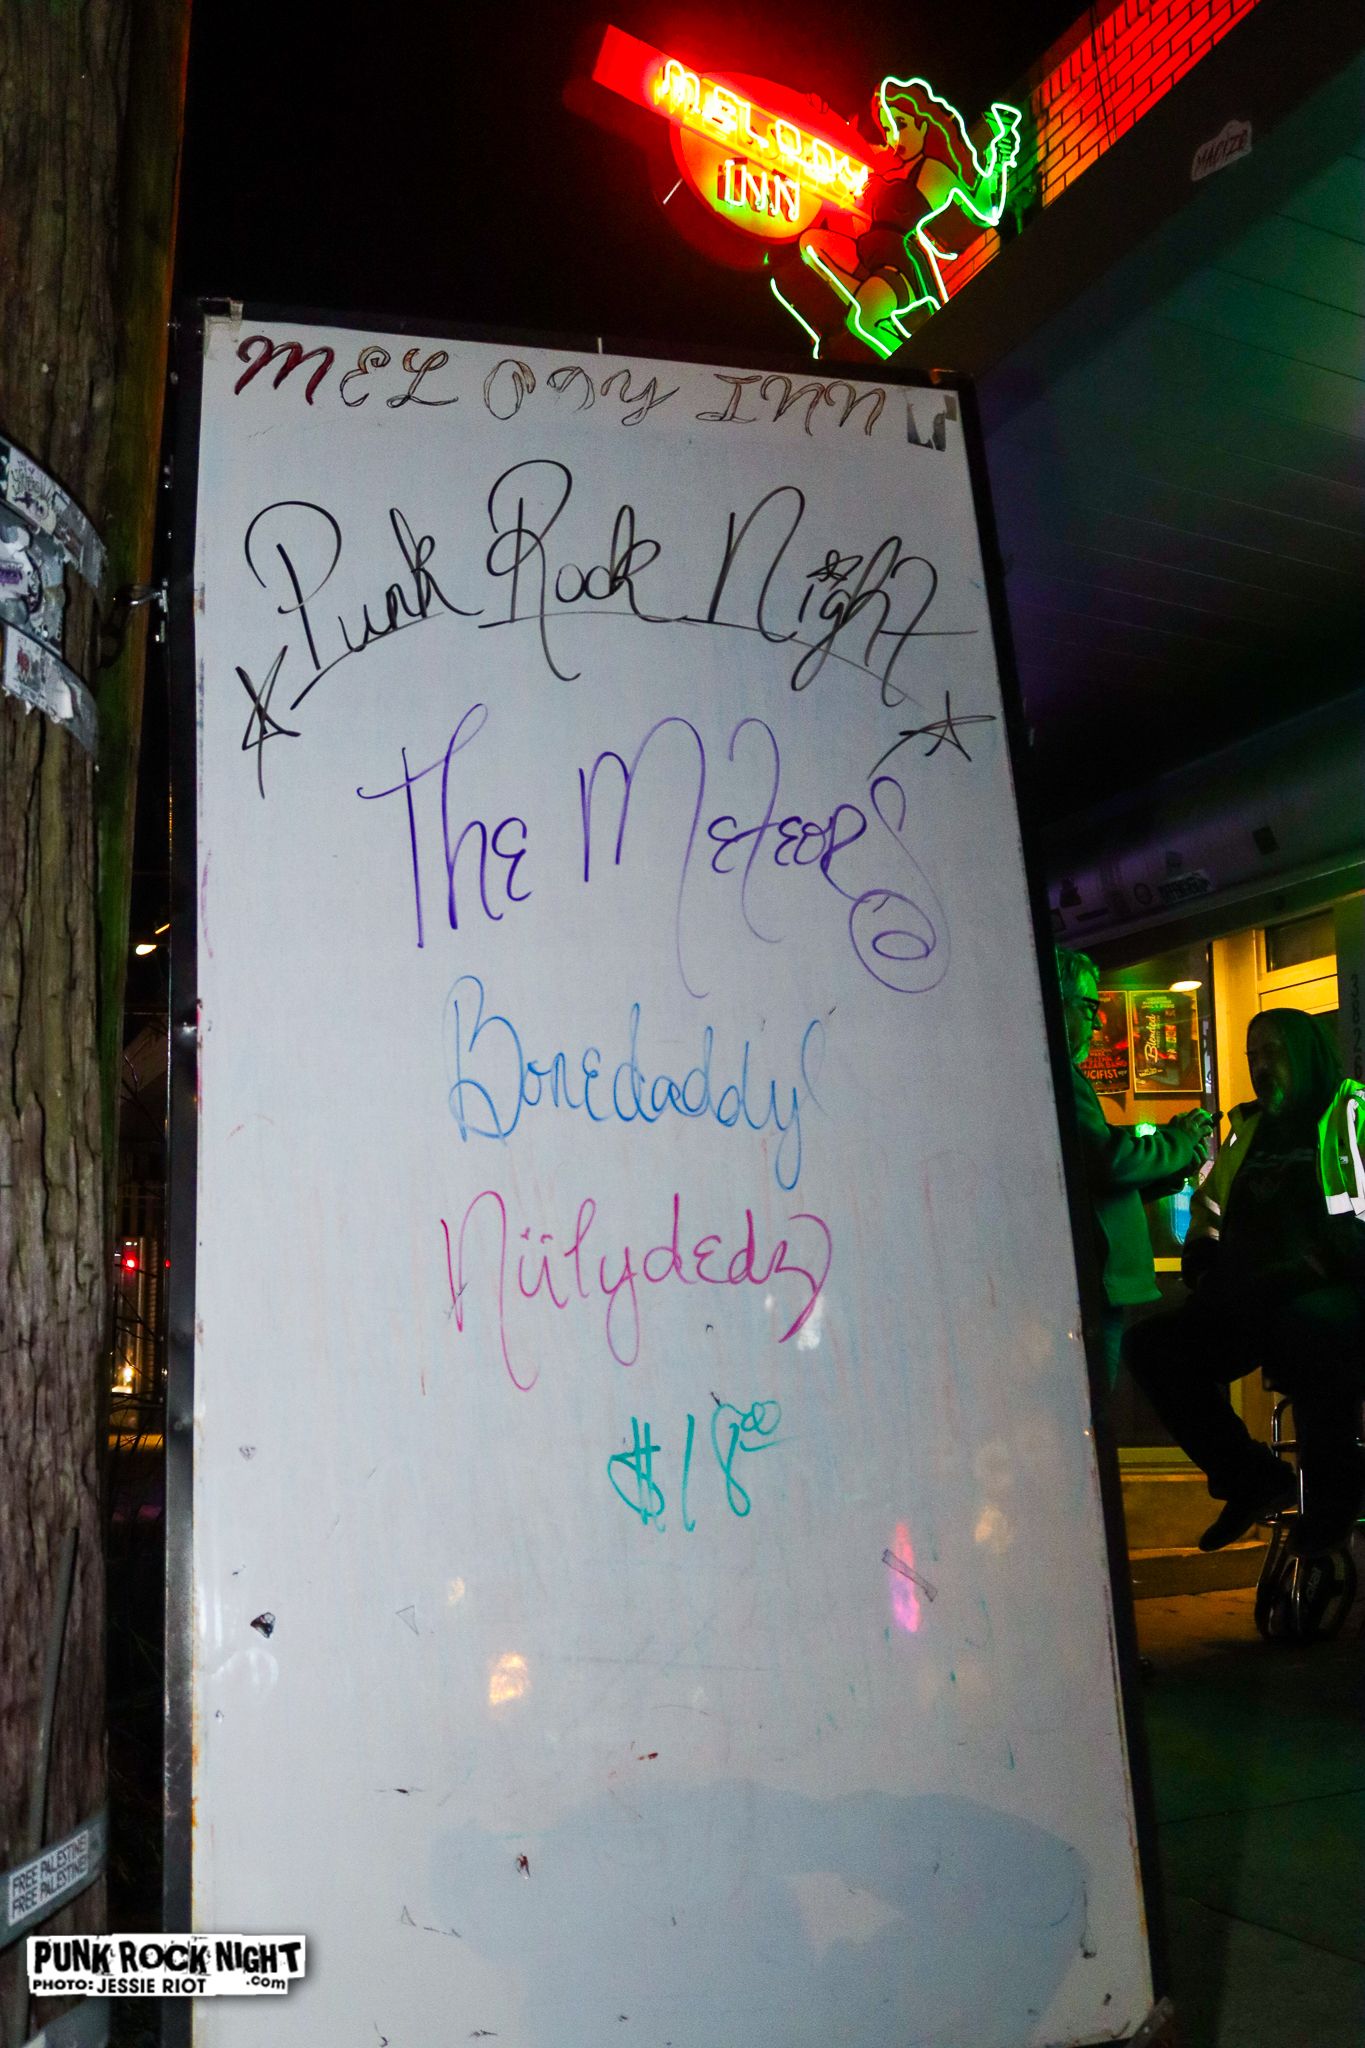 MELODY
INN
MELODY INN
Punk Rock Night
The Meteors
Bonedaddys
Niilydedz
$18.00
Blended
UCIFIST
FREE PALESTINE!
FREE PALESTINE!
PUNK ROCK NIGHT
.com
PHOTO: JESSIE RIOT